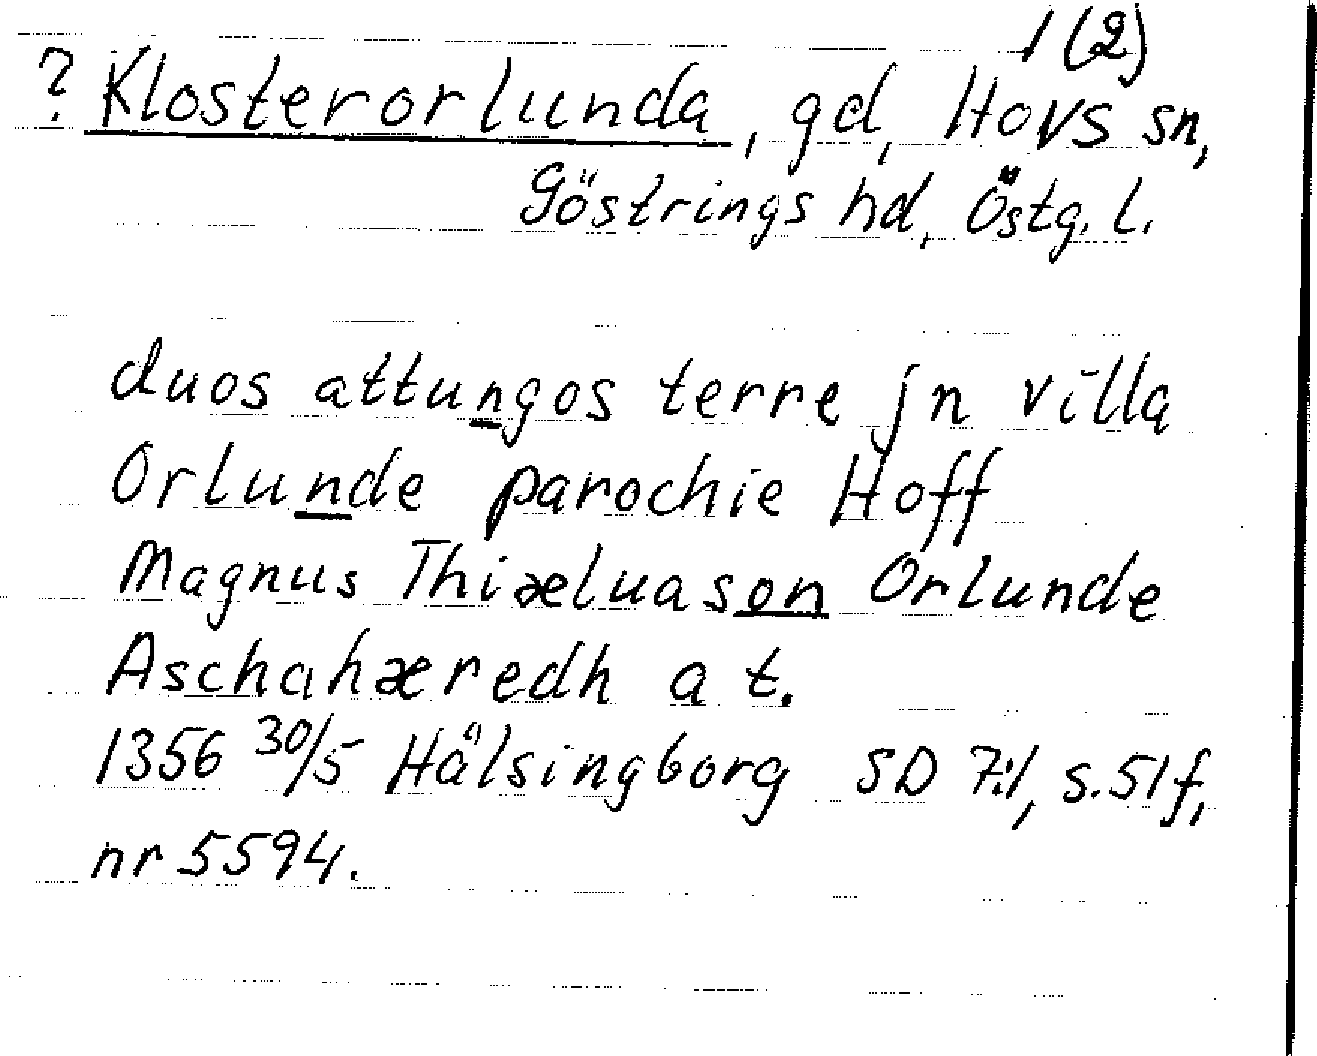 1 (2)
? Klosterorlunda, gd, Hovs sn,
Göstrings hd, Östg. l.
duos attungos terre jn villa
Orlunde parochie Hoff
Magnus Thiæluason Orlunde
Aschahæredh a t.
1356 30/5 Hälsingborg SD 7:1, s. 51 f,
nr 5594.